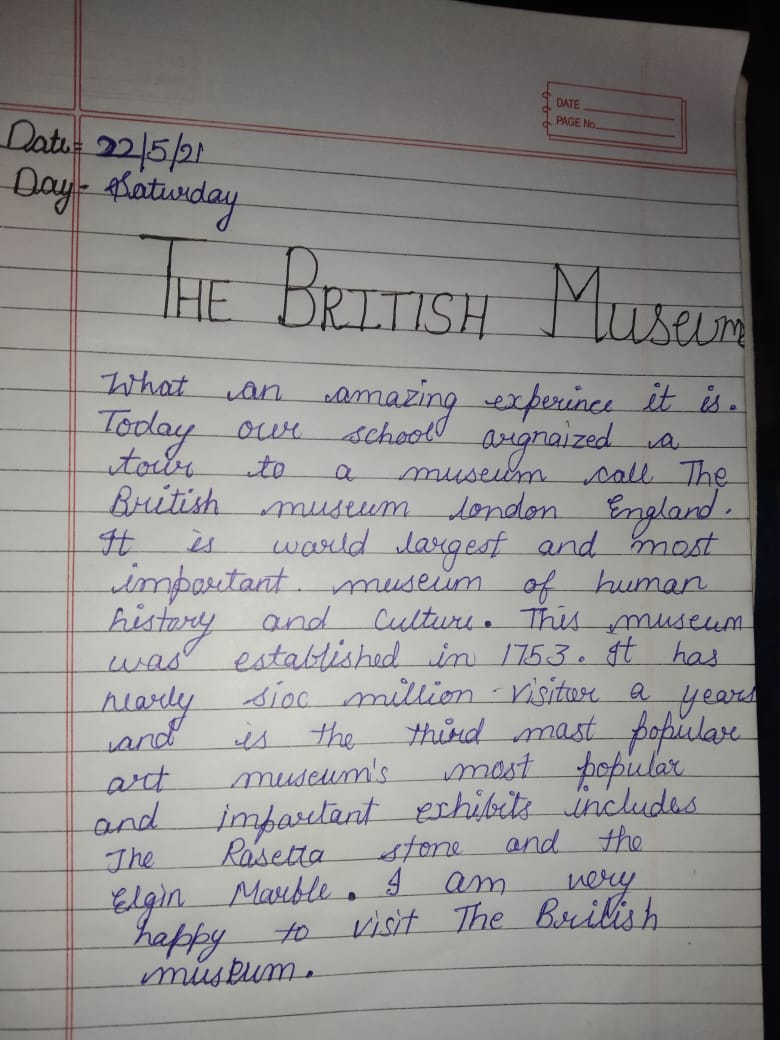 DATE
PAGE No.
Date= 22/5/21
Day- Saturday
THE BRITISH MUSEUM
What an amazing experince it is.
Today our school orgnaized a
tour to a museum call The
British museum london England.
It is world largest and most
important. museum of human
history and Culture. This museum
was established in 1753. It has
nearly six million visitor a years
and is the third most popular
art museum's most popular
and important exhibits includes
The Rosetta stone and the
Elgin Marble. I am very
happy to visit The British
museum.